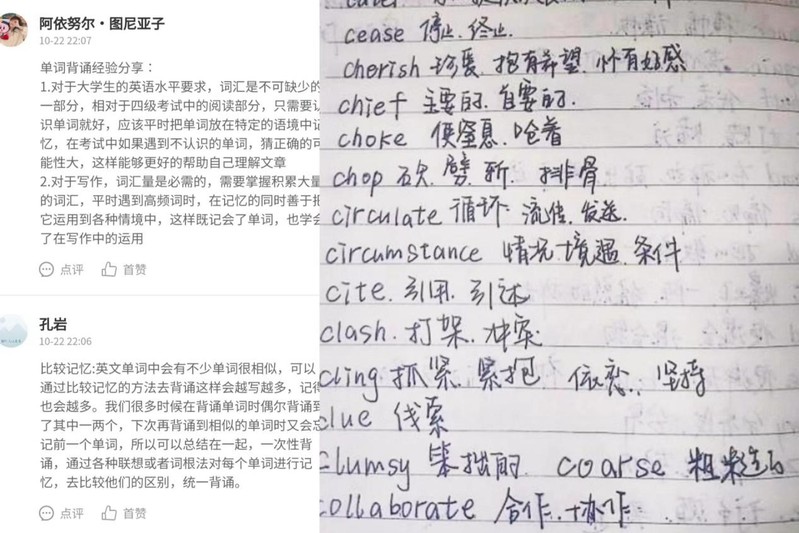 阿依努尔·图尼亚子
10-22 22:07
单词背诵经验分享：
1.对于大学生的英语水平要求，词汇是不可缺少的
一部分，相对于四级考试中的阅读部分，只需要认
识单词就好，应该平时把单词放在特定的语境中记
忆，在考试中如果遇到不认识的单词，猜正确的可
能性大，这样能够更好的帮助自己理解文章
2.对于写作，词汇量是必需的，需要掌握积累大量
的词汇，平时遇到高频词时，在记忆的同时善于把
它运用到各种情境中，这样既记会了单词，也学会
了在写作中的运用
点评 首赞
孔岩
10-22 22:06
比较记忆:英文单词中会有不少单词很相似，可以
通过比较记忆的方法去背诵这样会越写越多，记得
也会越多。我们很多时候在背诵单词时偶尔背诵到
了其中一两个，下次再背诵到相似的单词时又会忘
记前一个单词，所以可以总结在一起，一次性背
诵，通过各种联想或者词根法对每个单词进行记
忆，去比较他们的区别，统一背诵。
点评 首赞
cease 停止.终止.
cherish 珍爱.抱有希望.怀有好感
chief 主要的.首要的.
choke 使窒息.呛着
chop 砍.劈.斩.排骨
circulate 循环 流传.发送.
circumstance 情况.境遇.条件
cite.引用.引述
clash.打架.冲突
cling 抓紧.紧抱 依恋.坚持
clue 线索
clumsy 笨拙的 coarse 粗糙的
collaborate 合作.协作